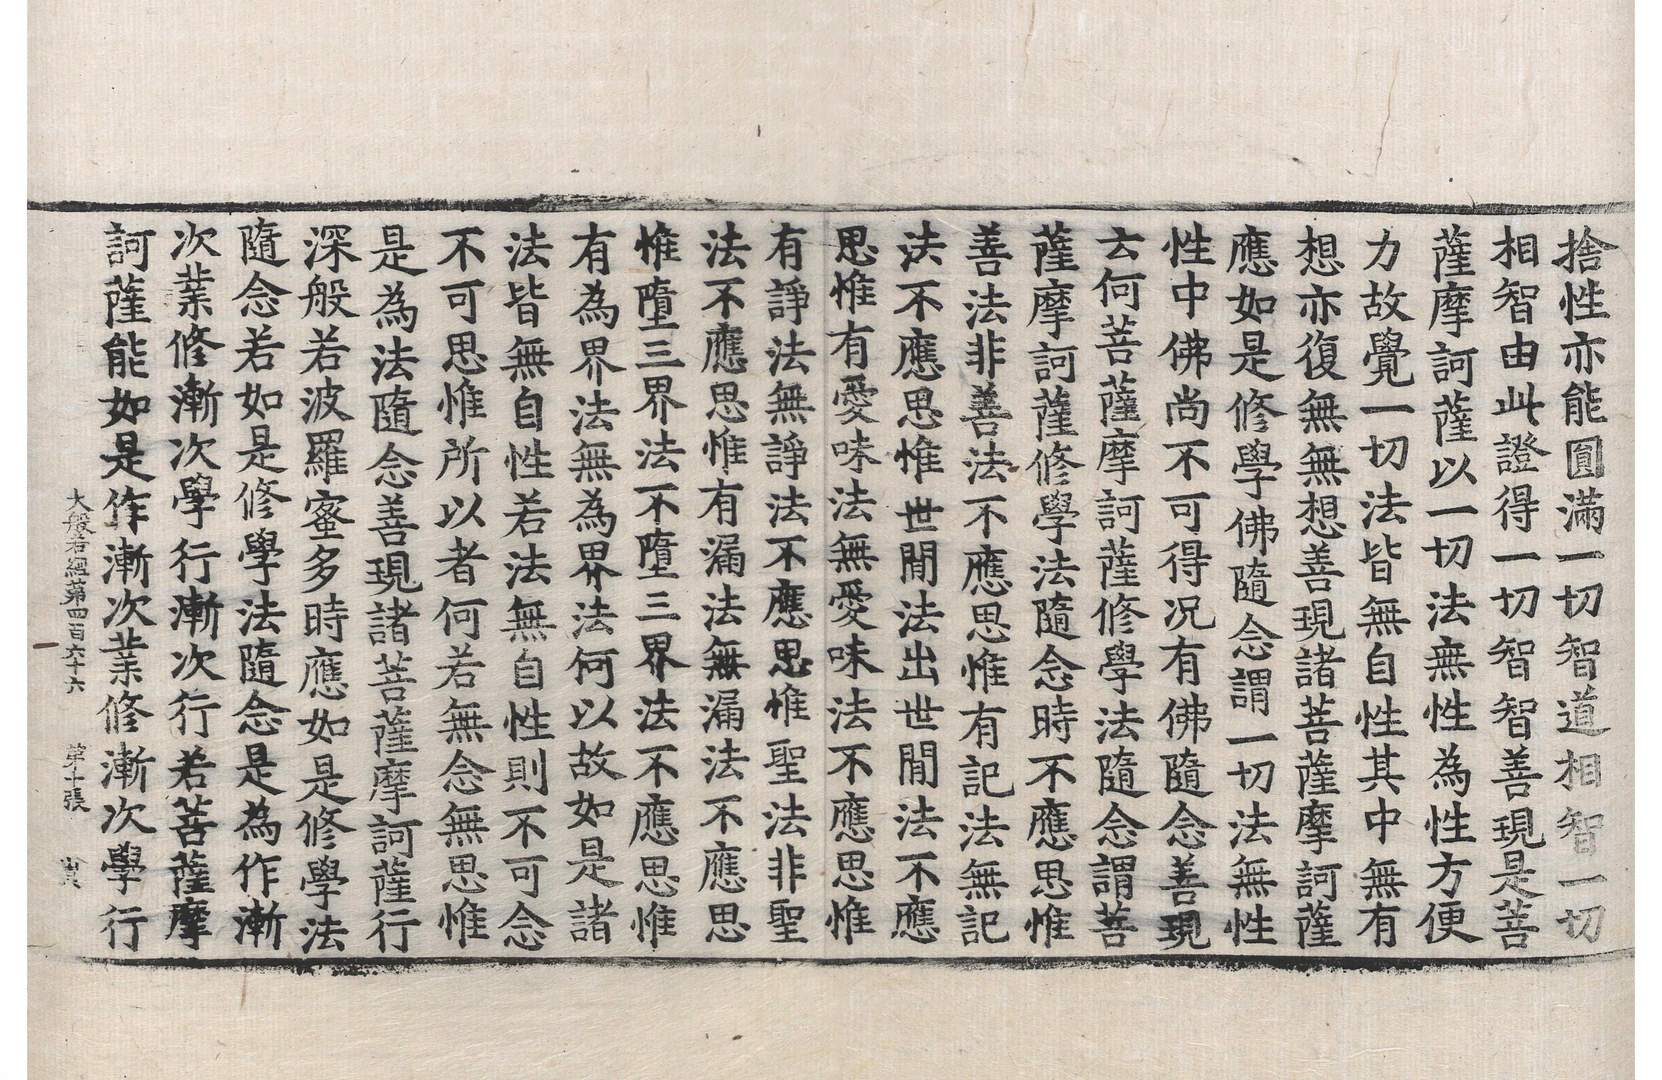 捨性亦能圓滿一切智道相智一切
相智由此證得一切智智善現是菩
薩摩訶薩以一切法無性為性方便
力故覺一切法皆無自性其中無有
想亦復無無想善現諸菩薩摩訶薩
應如是修學佛隨念謂一切法無性
性中佛尚不可得況有佛隨念善現
云何菩薩摩訶薩修學法隨念謂菩
薩摩訶薩修學法隨念時不應思惟
善法非善法不應思惟有記法無記
法不應思惟世間法出世間法不應
思惟有愛味法無愛味法不應思惟
有諍法無諍法不應思惟聖法非聖
法不應思惟有漏法無漏法不應思
惟墮三界法不墮三界法不應思惟
有為界法無為界法何以故如是諸
法皆無自性若法無自性則不可念
不可思惟所以者何若無念無思惟
是為法隨念善現諸菩薩摩訶薩行
深般若波羅蜜多時應如是修學法
隨念若如是修學法隨念是為作漸
次業修漸次學行漸次行若菩薩摩
訶薩能如是作漸次業修漸次學行
大般若經第四百六十六 第十張